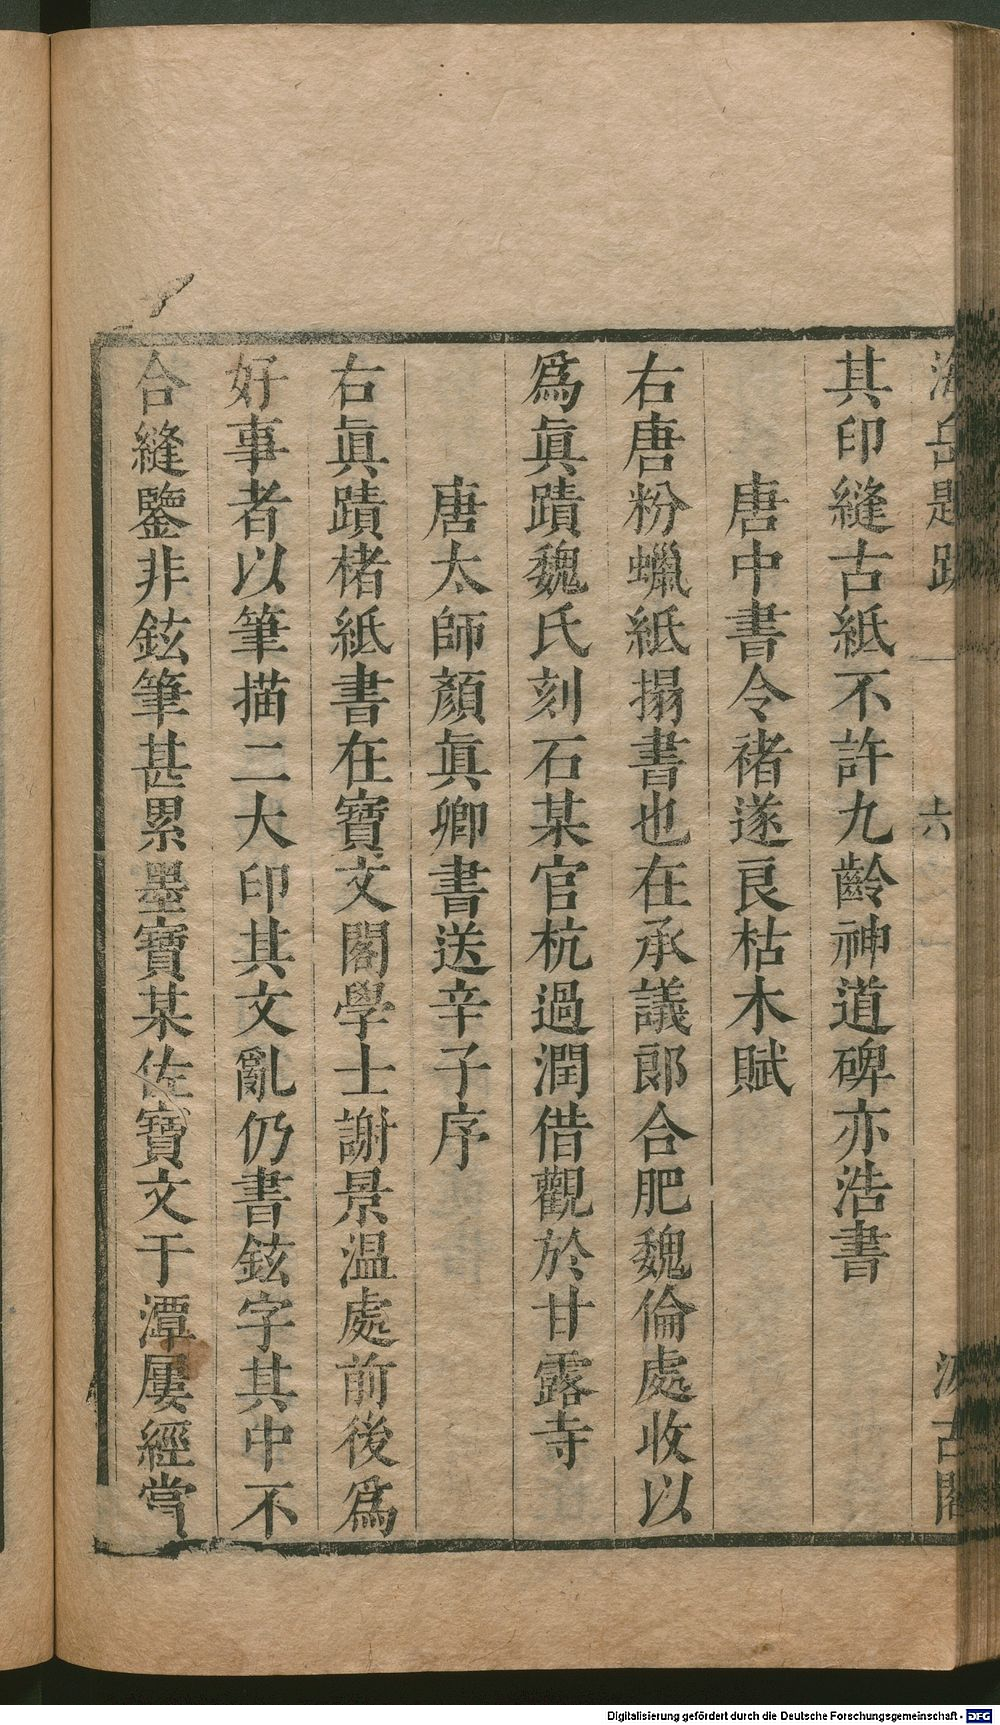 海岳題跋 十六 汲古閣
其印縫古紙不許九齡神道碑亦浩書
唐中書令褚遂良枯木賦
右唐粉蠟紙搨書也在承議郎合肥魏倫處收以
爲眞蹟魏氏刻石某官杭過潤借觀於甘露寺
唐太師顏眞卿書送辛子序
右眞蹟楮紙書在寶文閣學士謝景温處前後爲
好事者以筆描二大印其文亂仍書鉉字其中不
合縫鑒非鉉筆甚累墨寶某佐寶文于潭屢經嘗
Digitalisierung gefördert durch die Deutsche Forschungsgemeinschaft - DFG